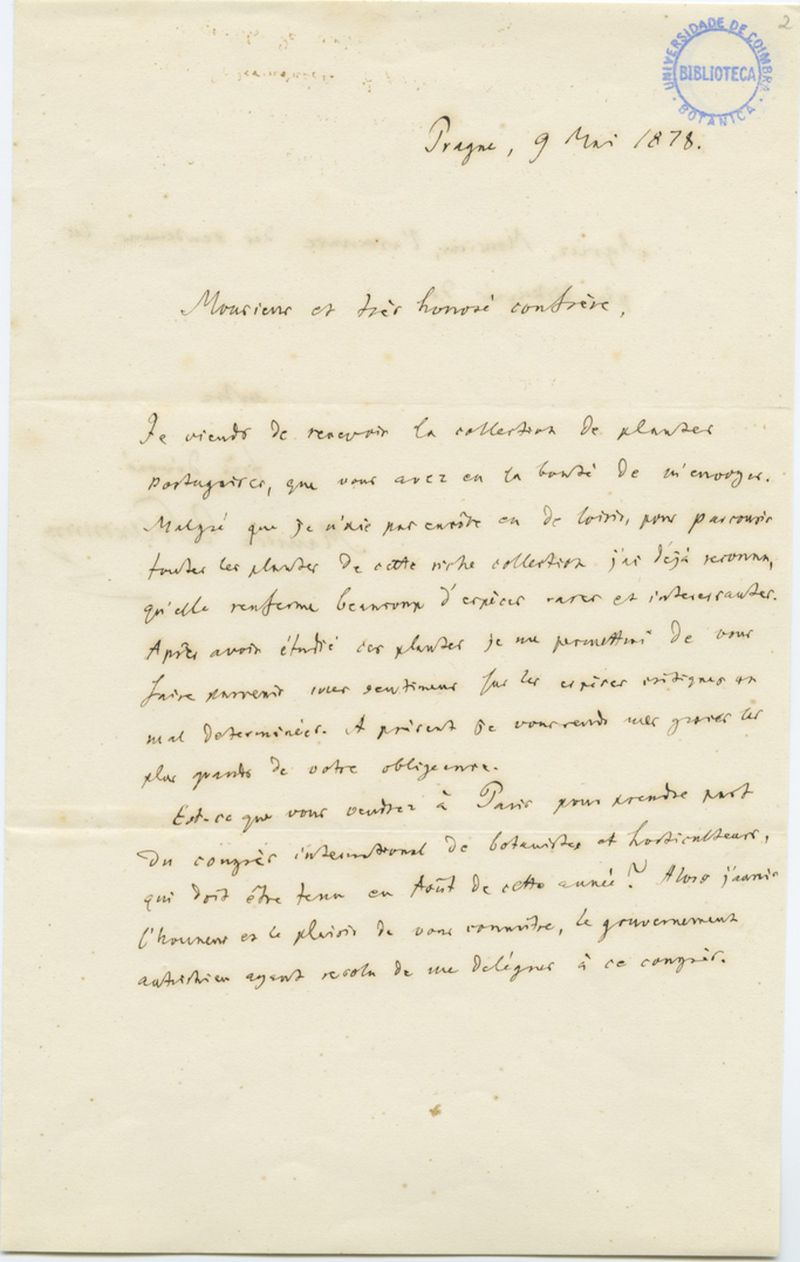 2
UNIVERSIDADE DE COIMBRA
BIBLIOTECA
BOTANICA
Prague, 9 Mai 1878.
Monsieur et très honoré confrère,
Je viends de recevoir la collection de plantes
portugaises, que vous avez eu la bonté de m'envoyer.
Malgré que je n'aie pas encore eu de loisir, pour parcourir
toutes les plantes de cette riche collection j'ai déjà reconnu,
qu'elle renferme beaucoup d'espèces rares et interessantes.
Après avoir étudié ces plantes je me permettrai de vous
faire parvenir mes sentimens sur les espèces critiques ou
mal determinées. A présent je vous rends mes graces les
plus grands de votre obligeance.
Est-ce que vous vendrez à Paris pour prendre part
du congrès international de botanistes et horticulteurs,
qui doit être tenu en Août de cette année? Alors j'aurais
l'honneur et le plaisir de vous connaître, le gouvernement
autrichien ayant resolu de me deléguer à ce congrès.